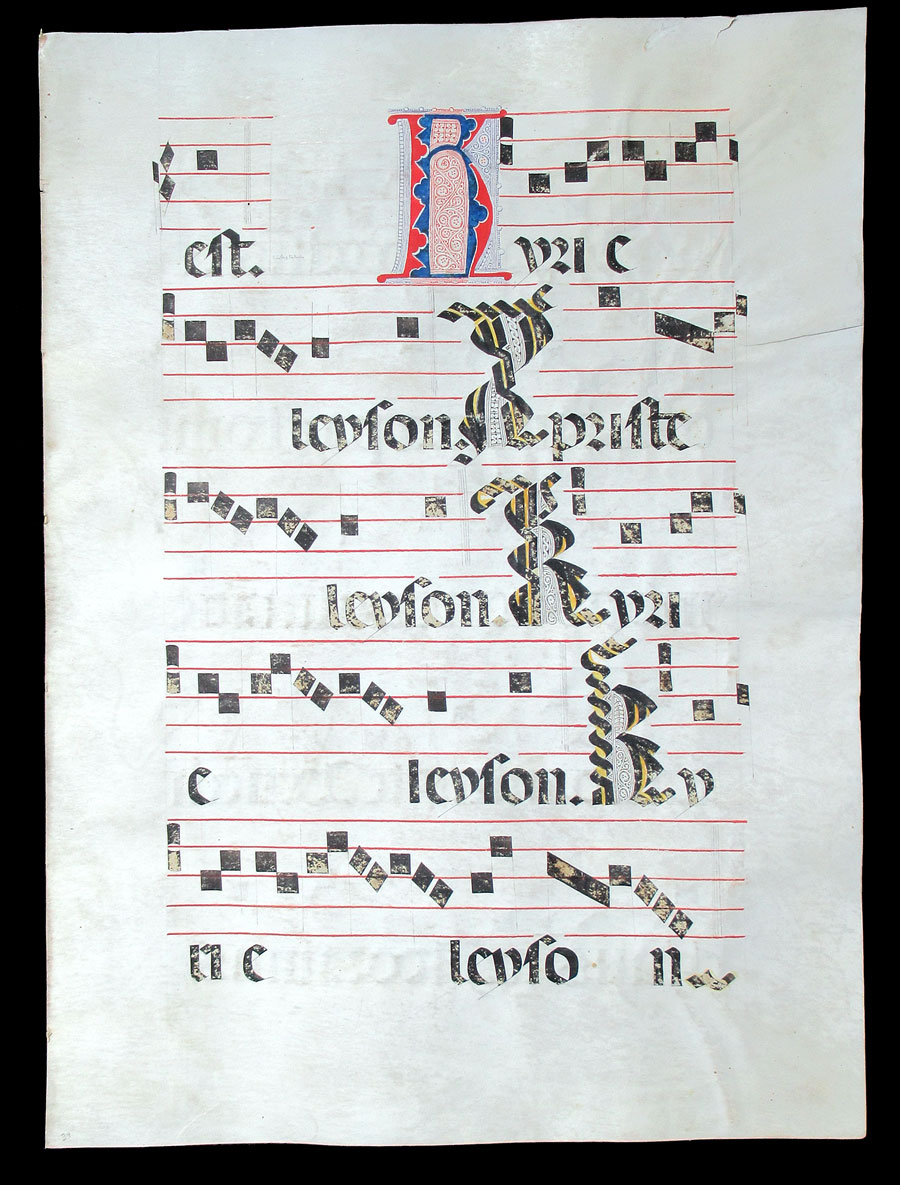 est. Kyri e
leyson Xpriste
leyson. Kyri
e leyson. Ky
ri e leyso n